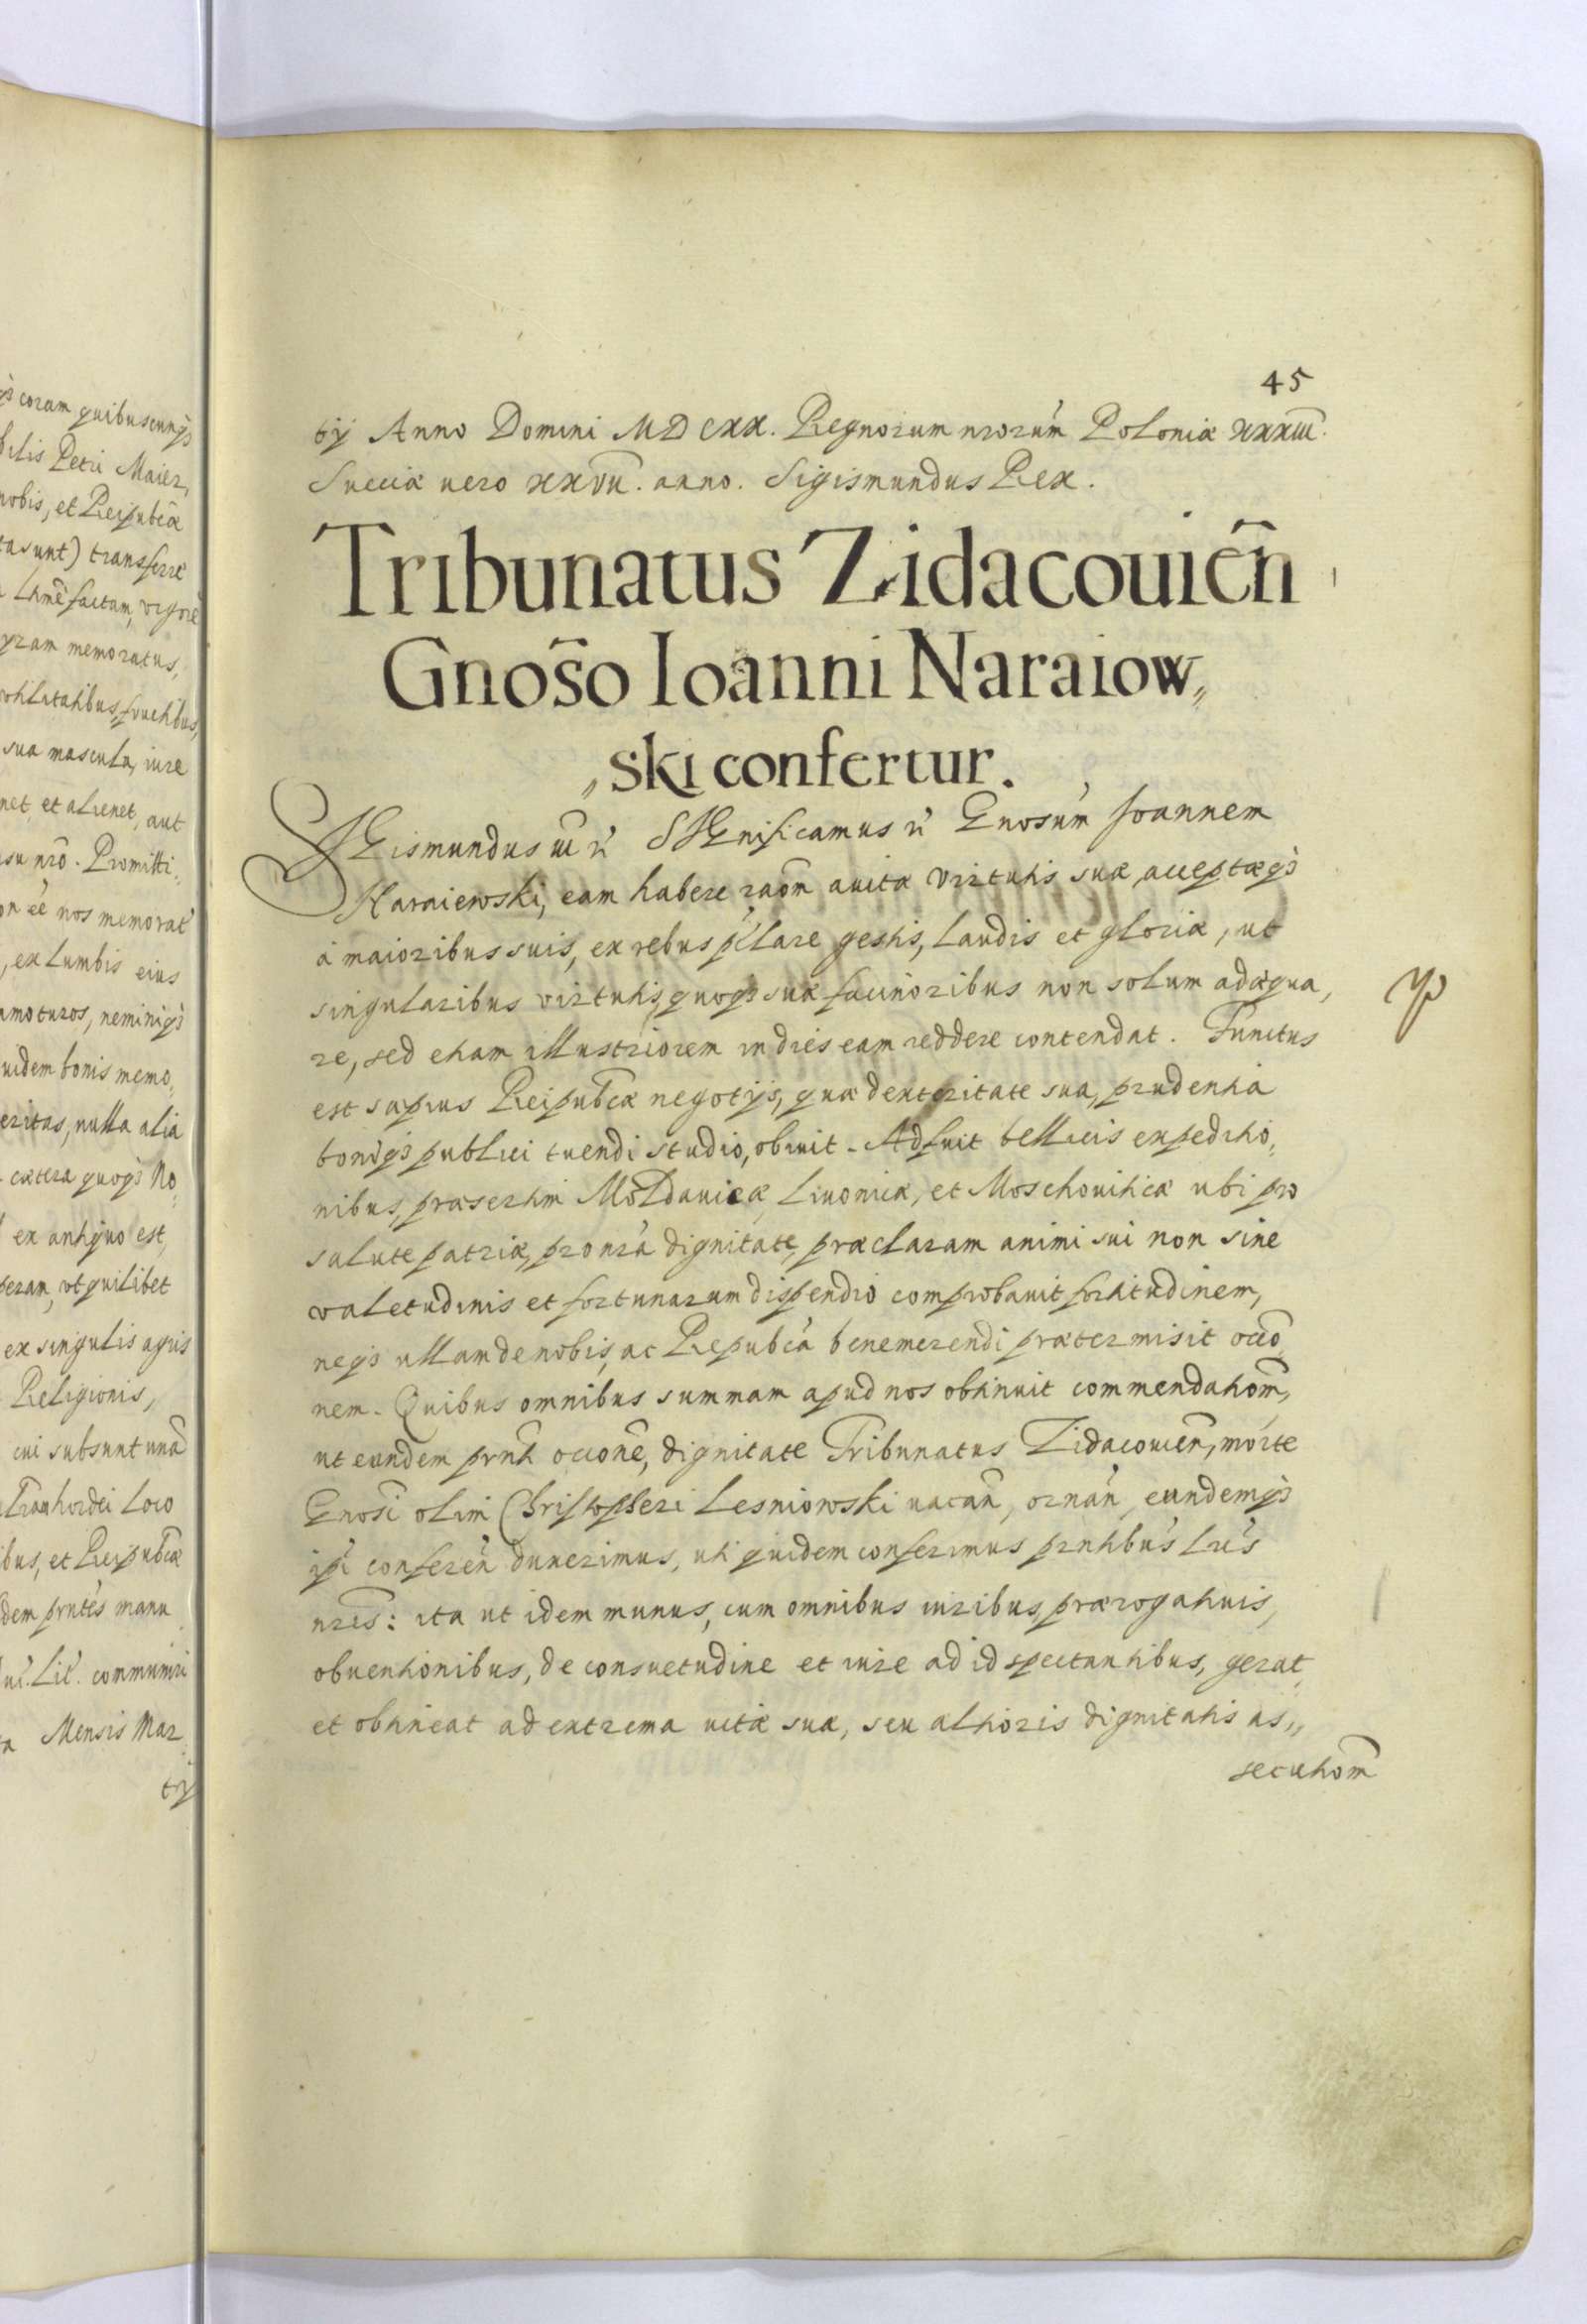 gs coram quibuscunqs
bilis Petri Maier,
nobis, et Reipubcæ
tasunt) transferre
Lrme factam, vigore
pram memoratus,
sua mascula, iure
net, et alienet, aut
su nro. Promitti„
on ee nos memorat
, ex Lumbis eius
amoturos, neminiqs
uidem bonis memo„
eritas, nulla alia
cætera quoqs No„
ex antiquo est,
peram, vt quilibet
ex singulis agris
Religionis,
cui subsunt una
loco
ibus, et Reipubcæ
dem prntes manu
communiri
Mensis Mar„
tij
45
tij Anno Domini MDCXX. Regnorum nrorum Poloniæ XXXIII.
Sueciæ uero XXVII. anno. Sigismundus Rex.
Tribunatus Zidacouien̄
Gnoso Ioanni Naraiow„
„ski confertur.
SIGismundus III r SIGnificamus r Gnosum Ioannem
Naraiewski, eam habere raōm auitæ virtutis suæ, acceptæqs
à maioribus suis, ex rebus pclare gestis, laudis et gloriæ, ut
singularibus virtutis, quoqs suæ facinoribus non solum adæqua„
re, sed etiam illustriorem in dies eam reddere contendat. Functus
est sæpius Reipubcæ negotijs, quæ dexteritate sua, prudentia
boniqs publici tuendi studio, obiuit. Adfuit bellicis expeditio„
nibus, præsertim Moldauicæ, Liuonicæ, et Moschouiticæ ubi pro
salute patriæ, pro nra dignitate, præclaram animi sui non sine
valetudinis et fortunarum dispendio comprobauit fortitudinem,
neqs ullam de nobis, ac Repubca benemerendi prætermisit occō„
nem. Quibus omnibus summam apud nos obtinuit commendatiōm,
ut eundem prnti occione, dignitate Tribunatus Zidacouien̄, morte
Gnosi olim Christopheri Lesniowski uacan̄, ornan̄, eundemqs
ipi conferen̄ duxerimus, uti quidem conferimus prntibus Lris
nris: ita ut idem munus, cum omnibus iuribus, prærogatiuis,
obuentionibus, de consuetudine et iure ad id spectantibus, gerat,
et obtineat ad extrema uitæ suæ, seu altioris dignitatis as„
secutiōm